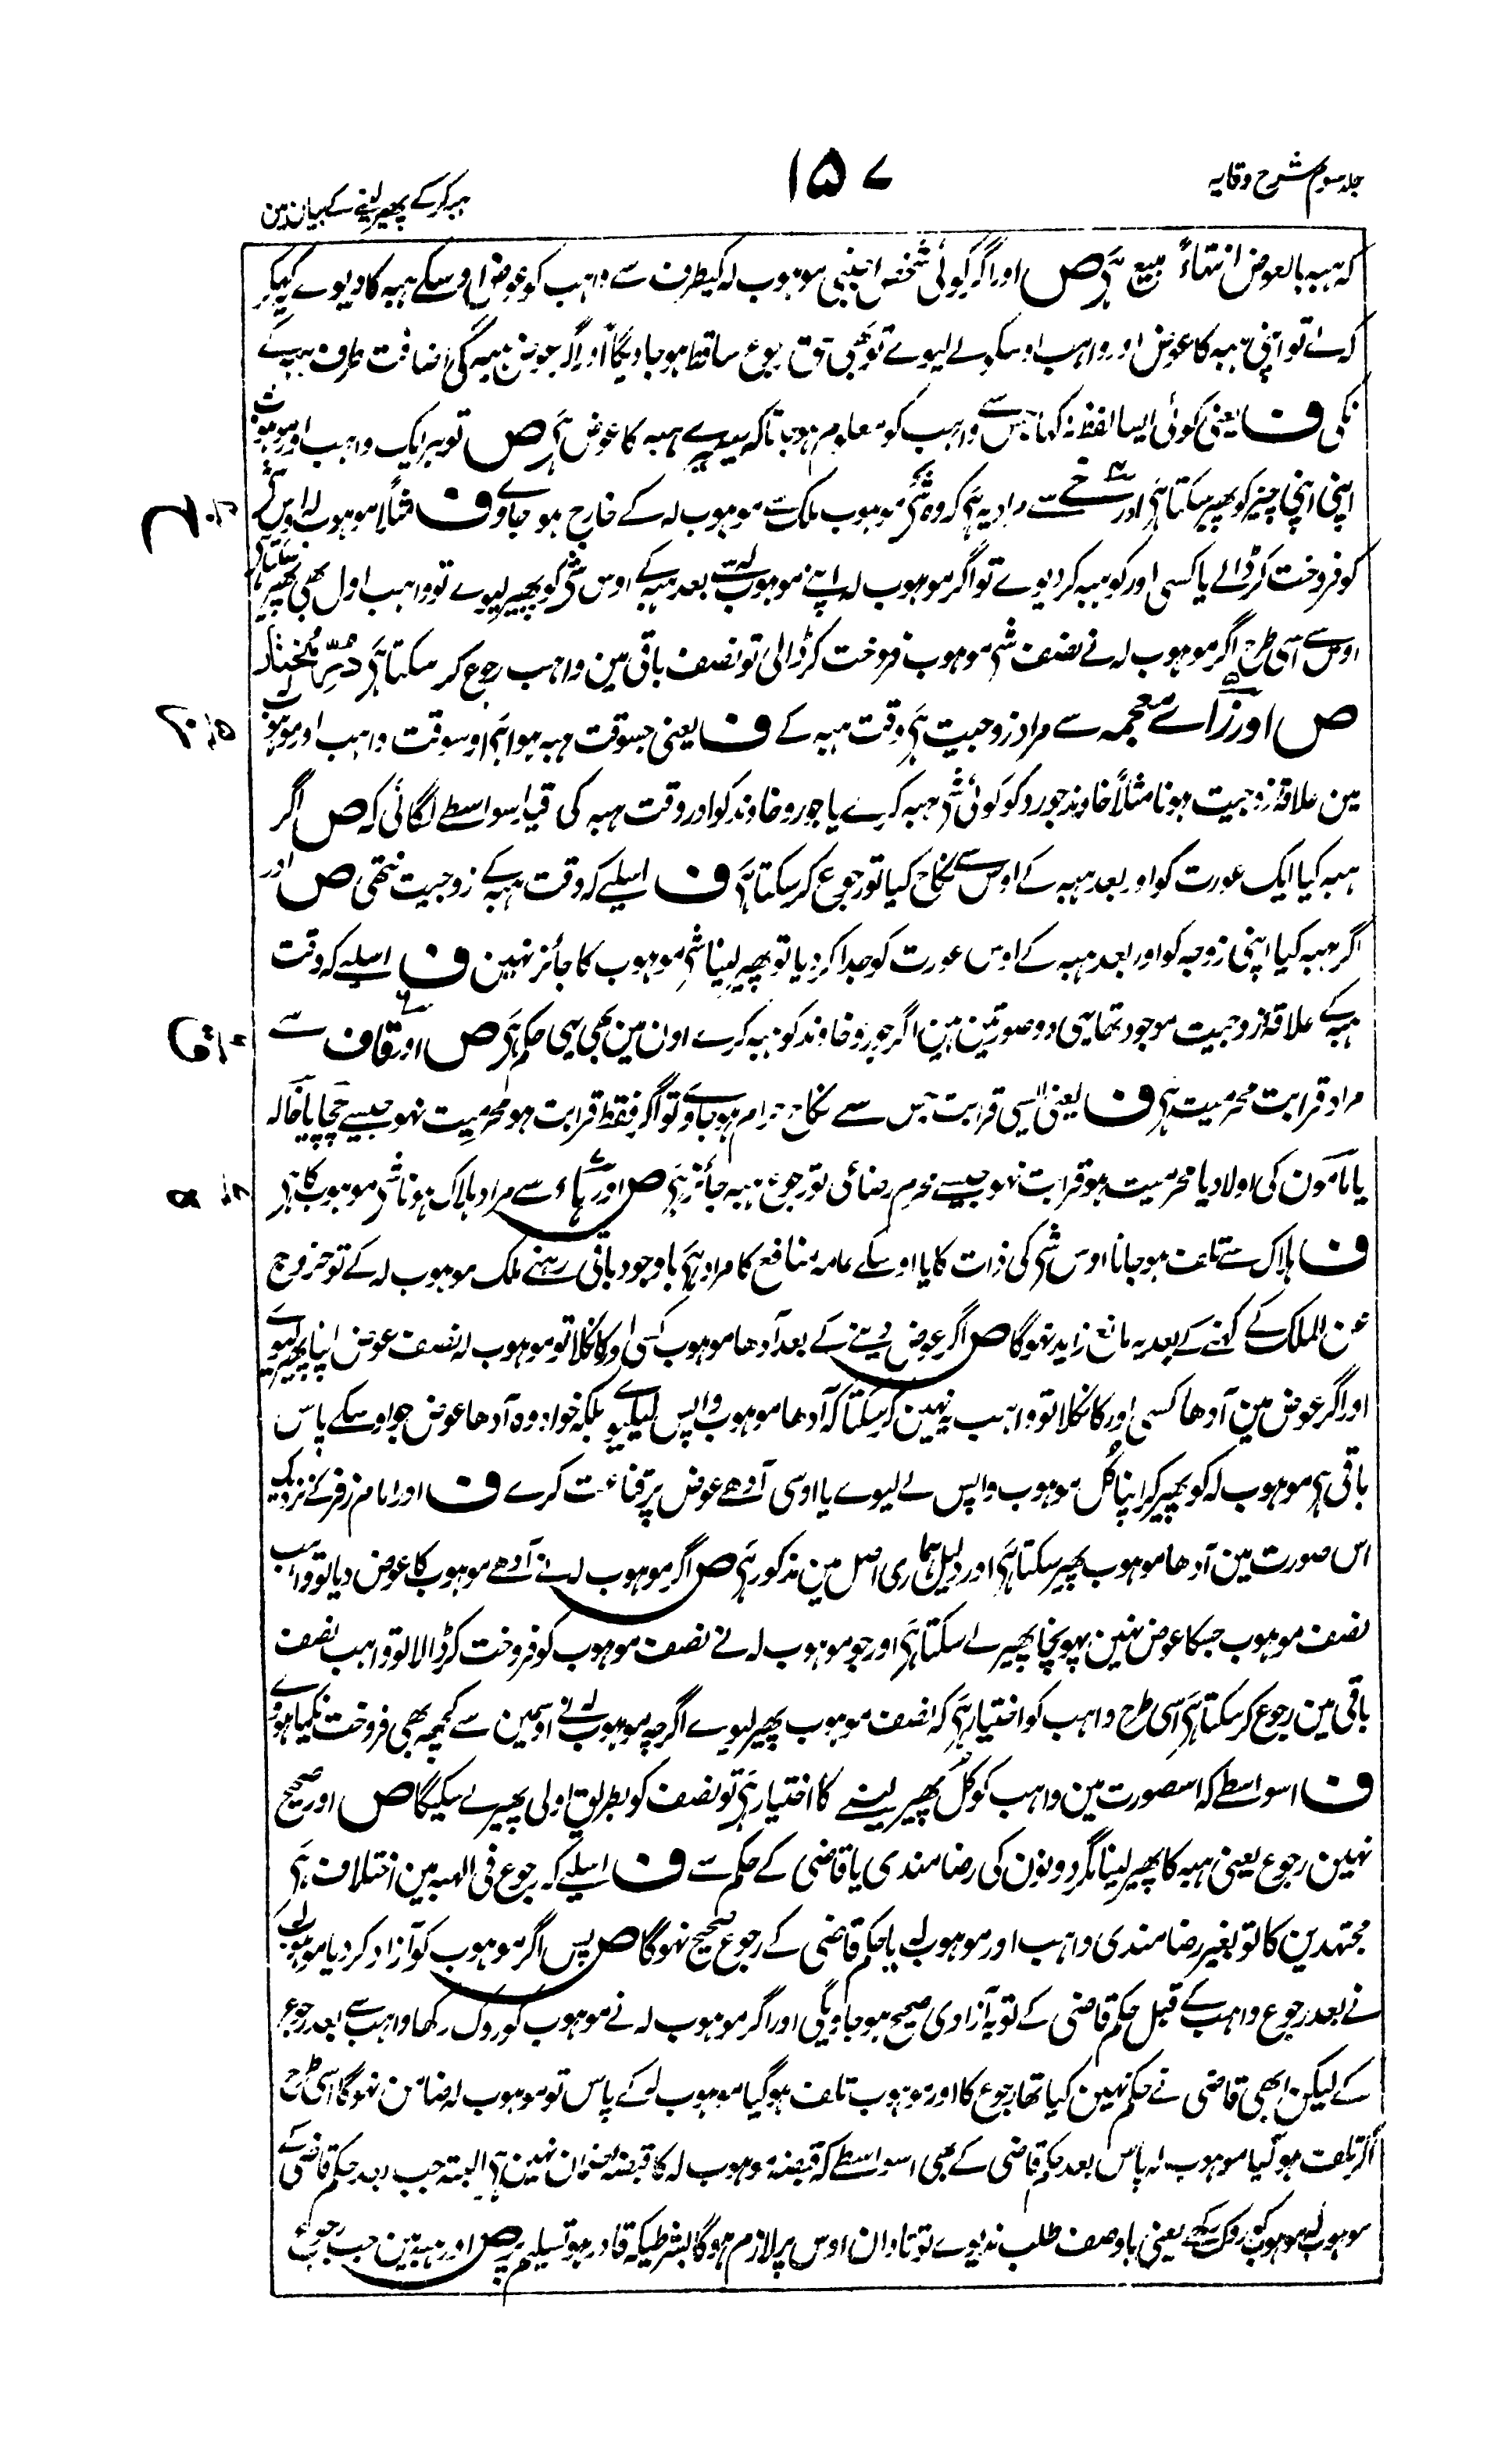 جلد سوم شرح وقایہ
۱۵۷
ہبہ کرکے پھیر لینے کے بیان مین
کہ ہبہ بالعوض انتہاءً بیع ہَی ص اور اگر کوئی شخص اجنبی موہوب لہ کیطرف سے واہب کو عوض اوسکے ہبہ کا دیوے یہ کہکر
کہ لے تو اپنی ہبہ کا عوض اور واہب اوسکو لے لیوے تو بھی حق رجوع ساقط ہو جاویگا اور اگر عوض مین ہبہ کی اضافت طرف ہبہ کے
نکی ف یعنی کوئی ایسا لفظ نہ کہا جس سے واہب کو معلوم ہو جاتا کہ یہ میرے ہبہ کا عوض ہَی ص تو ہر ایک واہب اور موہوب لہ
اپنی اپنی چیز کو پھیر سکتا ہَی اور خے سے مراد یہ ہَی کہ وہ شَی موہوب ملک سے موہوب لہ کے خارج ہو جاوے ف مثلًا موہوب لہ اوس شَی
کو فروخت کر ڈالے یا کسی اور کو ہبہ کر دیوے تو اگر موہوب لہ اپنے موہوب لہ سے بعد ہبہ کے اوس شَی کو پھیر لیوے تو واہب اول بھی پھیر سکتا ہَی
اوس سے اسی طرح اگر موہوب لہ نے نصف شَی موہوب فروخت کر ڈالی تو نصف باقی مین واہب رجوع کر سکتا ہَی درّ مختار
ص اور زاے معجمہ سے مراد زوجیت ہَی وقت ہبہ کے ف یعنی جسوقت ہبہ ہوا ہَی اوسوقت واہب اور موہوب لہ
مین علاقۂ زوجیت ہونا مثلًا خاوند جورو کو کوئی شَی ہبہ کرے یا جورو خاوند کو اور وقت ہبہ کی قید اسواسطے لگائی کہ ص اگر
ہبہ کیا ایک عورت کو اور بعد ہبہ کے اوس سے نکاح کیا تو رجوع کر سکتا ہَی ف اسلیے کہ وقت ہبہ کے زوجیت نتھی ص اور
اگر ہبہ کیا اپنی زوجہ کو اور بعد ہبہ کے اوس عورت کو جدا کر دیا تو پھیر لینا شَی موہوب کا جائز نہین ف اسلیے کہ وقت
ہبہ کے علاقۂ زوجیت موجود تھا یہی دو صورتین ہین اگر جورو خاوند کو ہبہ کرے اون مین بھی یہی حکم ہَی ص اور قاف سے
مراد قرابت محرمیت ہَی ف یعنی ایسی قرابت جس سے نکاح حرام ہو جاوے تو اگر فقط قرابت ہو محرمیت نہو جیسے چچا یا خالہ
یا مامون کی اولاد یا محرمیت ہو قرابت نہو جیسے محرم رضاعی تو رجوع ہبہ جائز ہَی ص اور ہاء سے مراد ہلاک ہونا شَی موہوب کا ہَی
ف ہلاک سے تلف ہو جانا اوس شَی کی ذات کا یا اوسکے عامہ منافع کا مراد ہَی باوجود باقی رہنے ملک موہوب لہ کے تو خروج
عن الملک کے کہنے کے بعد یہ مانع زاید نہوگا ص اگر عوض دینے کے بعد آدھا موہوب کسی اور کا نکلا تو موہوب لہ نصف عوض اپنا پھیر لیوے
اور اگر عوض مین آدھا کسی اور کا نکلا تو واہب یہ نہین کر سکتا کہ آدھا موہوب واپس لیلیوے بلکہ خواہ وہ آدھا عوض جو اوسکے پاس
باقی ہَی موہوب لہ کو پھیر کر اپنا کُل موہوب واپس لے لیوے یا اوسی آدھے عوض پر قناعت کرے ف اور امام زفر کے نزدیک
اس صورت مین آدھا موہوب پھیر سکتا ہَی اور دلیل ہماری اصل مین مذکور ہَی ص اگر موہوب لہ نے آدھے موہوب کا عوض دیا تو واہب
نصف موہوب جسکا عوض نہین پہونچا پھیر لے سکتا ہَی اور جو موہوب لہ نے نصف موہوب کو فروخت کر ڈالا تو واہب نصف
باقی مین رجوع کر سکتا ہَی اسی طرح واہب کو اختیار ہَی کہ نصف موہوب پھیر لیوے اگرچہ موہوب لہ نے اوسمین سے کچھ بھی فروخت نکیا ہووے
ف اسواسطے کہ اسصورت مین واہب کو کل پھیر لینے کا اختیار ہَی تو نصف کو بطریق اولی پھیر لے سکیگا ص اور صحیح
نہین رجوع یعنی ہبہ کا پھیر لینا مگر دونون کی رضامندی یا قاضی کے حکم سے ف اسلیے کہ رجوع فی الہبہ مین اختلاف ہَی
مجتہدین کا تو بغیر رضامندی واہب اور موہوب لہ یا حکم قاضی کے رجوع صحیح نہوگا ص پس اگر موہوب کو آزاد کر دیا موہوب لہ
نے بعد رجوع واہب کے قبل حکم قاضی کے تو یہ آزادی صحیح ہو جاویگی اور اگر موہوب لہ نے موہوب کو روک رکھا واہب سے بعد رجوع
کے لیکن ابھی قاضی نے حکم نہین کیا تھا رجوع کا اور موہوب تلف ہو گیا موہوب لہ کے پاس تو موہوب لہ ضامن نہوگا اسی طرح
اگر تلف ہو گیا موہوب لہ پاس بعد حکم قاضی کے بھی اسواسطے کہ قبضہ موہوب لہ کا قبضۂ ضمان نہین ہَی البتہ جب بعد حکم قاضی کے
موہوب لہ موہوب کو روک رکھے یعنی باوصف طلب ندیوے تو تاوان اوس پر لازم ہوگا بشرطیکہ قادر ہو تسلیم پر ص اور ہبہ مین جب رجوع